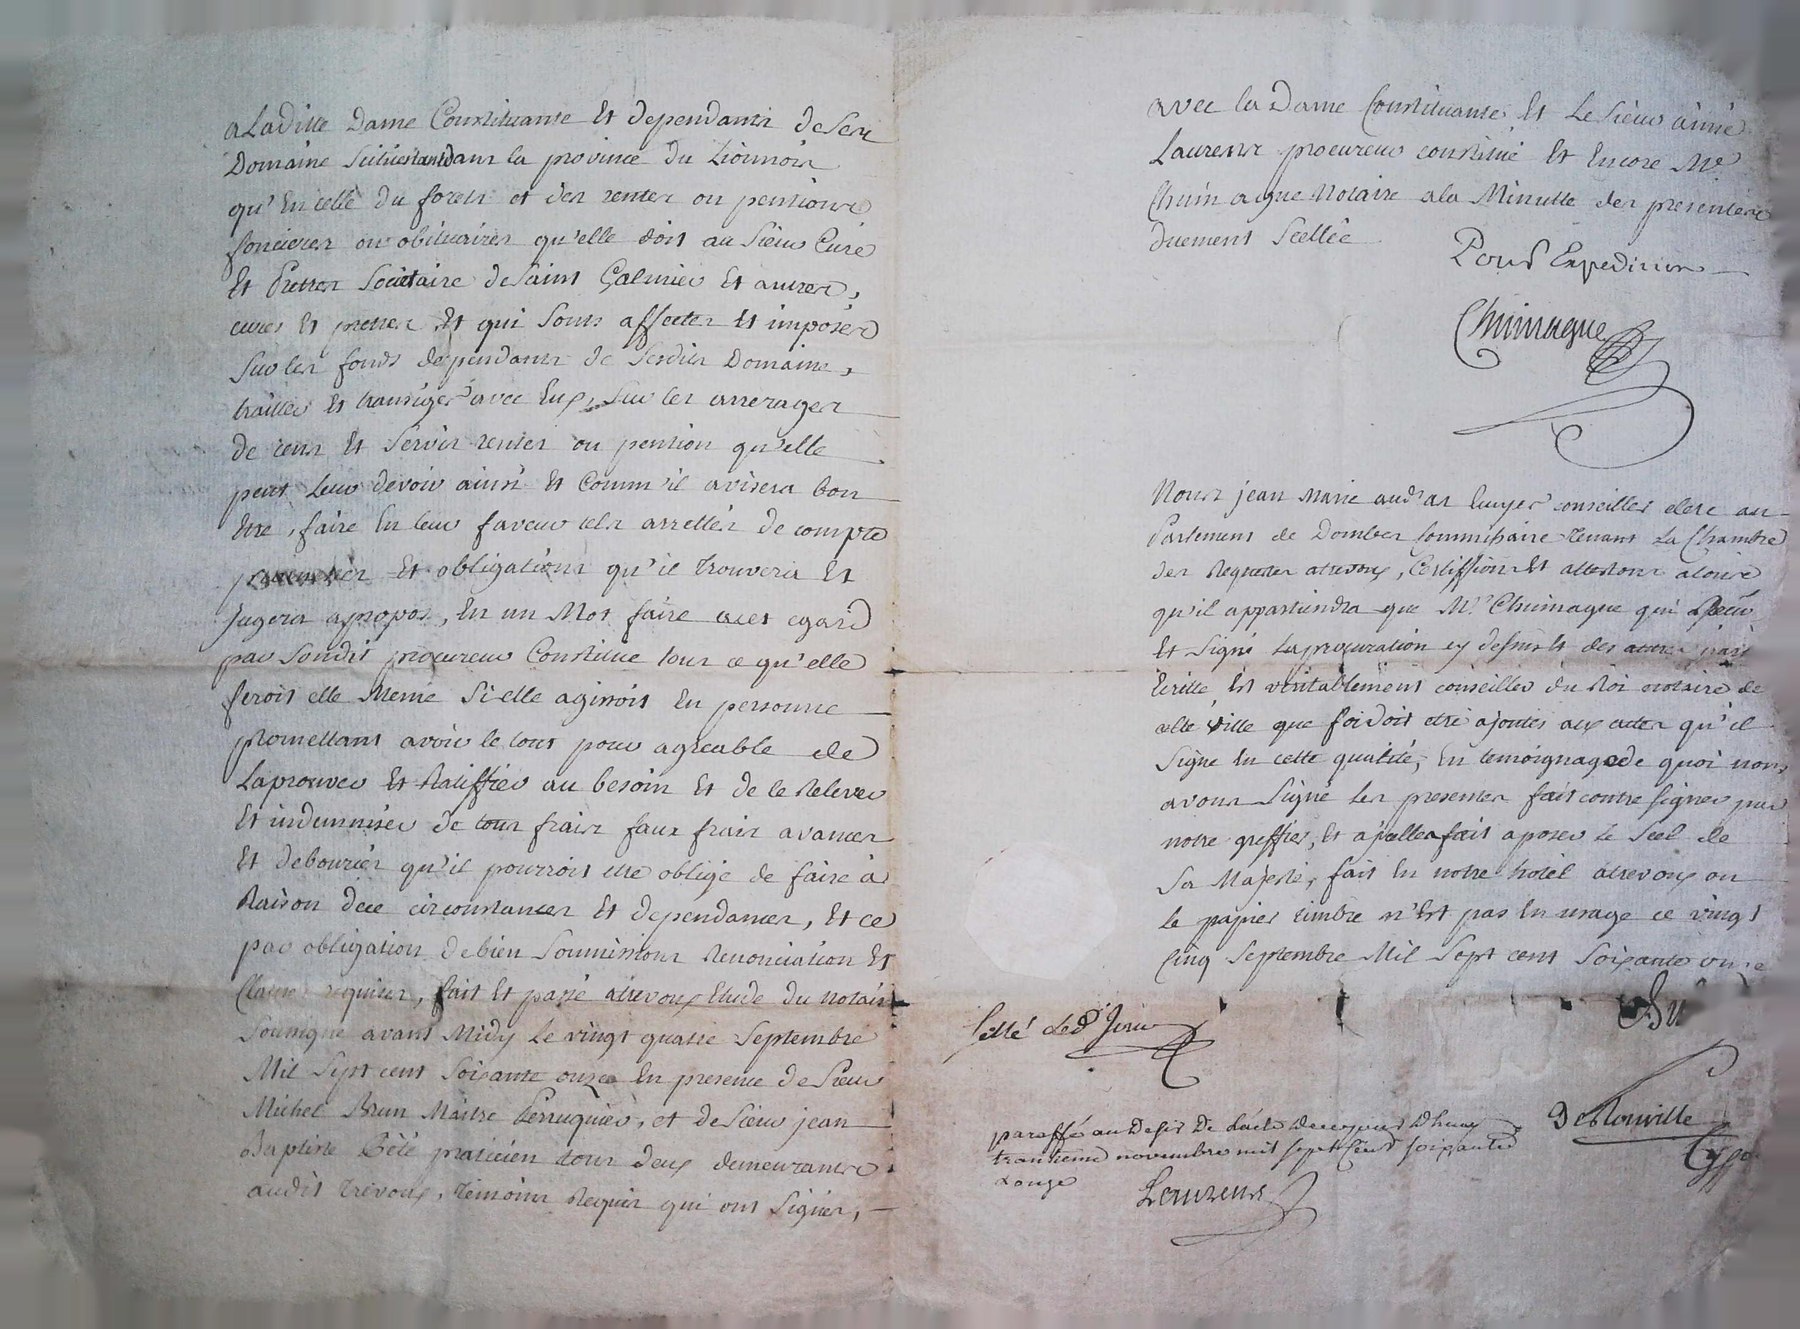 a Laditte Dame Constituante Et dependants de Ses
Domaine Scitués dans la province du Lionnois
qu'En celle du forets et des rentes ou pentions
foncieres ou obituaires qu'elle doit au Sieur Curé
Et Pretres Sociétaire de Saint Galmier Et autres,
cures Et pretres, Et qui Sonts affectes Et imposés
Sur les fonds dependants de Sesdits Domaine,
traitter Et transiger avec Eux, Sur les arrerages
de cens Et Servis rentes ou pention qu'elle
peut Leur devoir ainsi Et Comm'il avisera bon
Etre, faire En leur faveur tels arrettés de compte
Et obligations qu'il trouvera Et
Jugera apropos, En un Mot faire acet egard
par Sondit procureur Constitué tout ce qu'elle
feroit elle Meme Si elle agissoit En personne
Promettant avoir le tout pour agreable de
Laprouver Et Ratiffier au besoin Et de le Relever
Et indemniser de tous frais faux frais avances
Et debourés qu'il pourroit etre obligé de faire à
Raison dece circonstances Et dependances, Et ce
par obligation de bien Soumissions Renonciation Et
Clause requises, fait Et passé atrevoux Etude du notaire
Soussigné avant Midy Le vingt quatre Septembre
Mil Sept cent Soixante onze En presence de Sieur
Michel Brun Maitre Perruquier, et de Sieur jean
Baptiste Bété praticien tous deux demeurants
audit Trévoux, témoins Requis qui ont Signés,
avec la Dame Constituante Et Le Sieur aimé
Laurens procureur constitué Et Encore Me.
Chuimague Notaire ala Minutte des presentes
duement Scellée
Pour Expedition
Chuimague
Nous jean Marie audras Ecuyer conseiller clerc au
Parlement de Dombes Commissaire tenant La Chambre
des Requetes atrevoux, Certiffions Et attestons atous
qu'il appartiendra que Me. Chuimague qui a Reçu
Et Signé La procuration cy dessus Et des autres part
Ecritte Est véritablement conseiller du Roi notaire de
cette ville que foi doit etre ajoutés aux actes qu'il
Signe En cette qualité, En temoignage de quoi nous
avons Signé Les presentes fait contre signer par
notre greffier, Et a ycelles fait aposer le Scel de
Sa Majesté, fait En notre hotel atrevoux ou
le papier timbre n'Est pas En usage ce vingt
Cinq Septembre Mil Sept cent Soixante onze
Scellé led. Jour
Deblonville
paraffé au Desir de Lacte decejourdhuy
trantieme novembre mil sept Cent soixante
& onze
Laurens